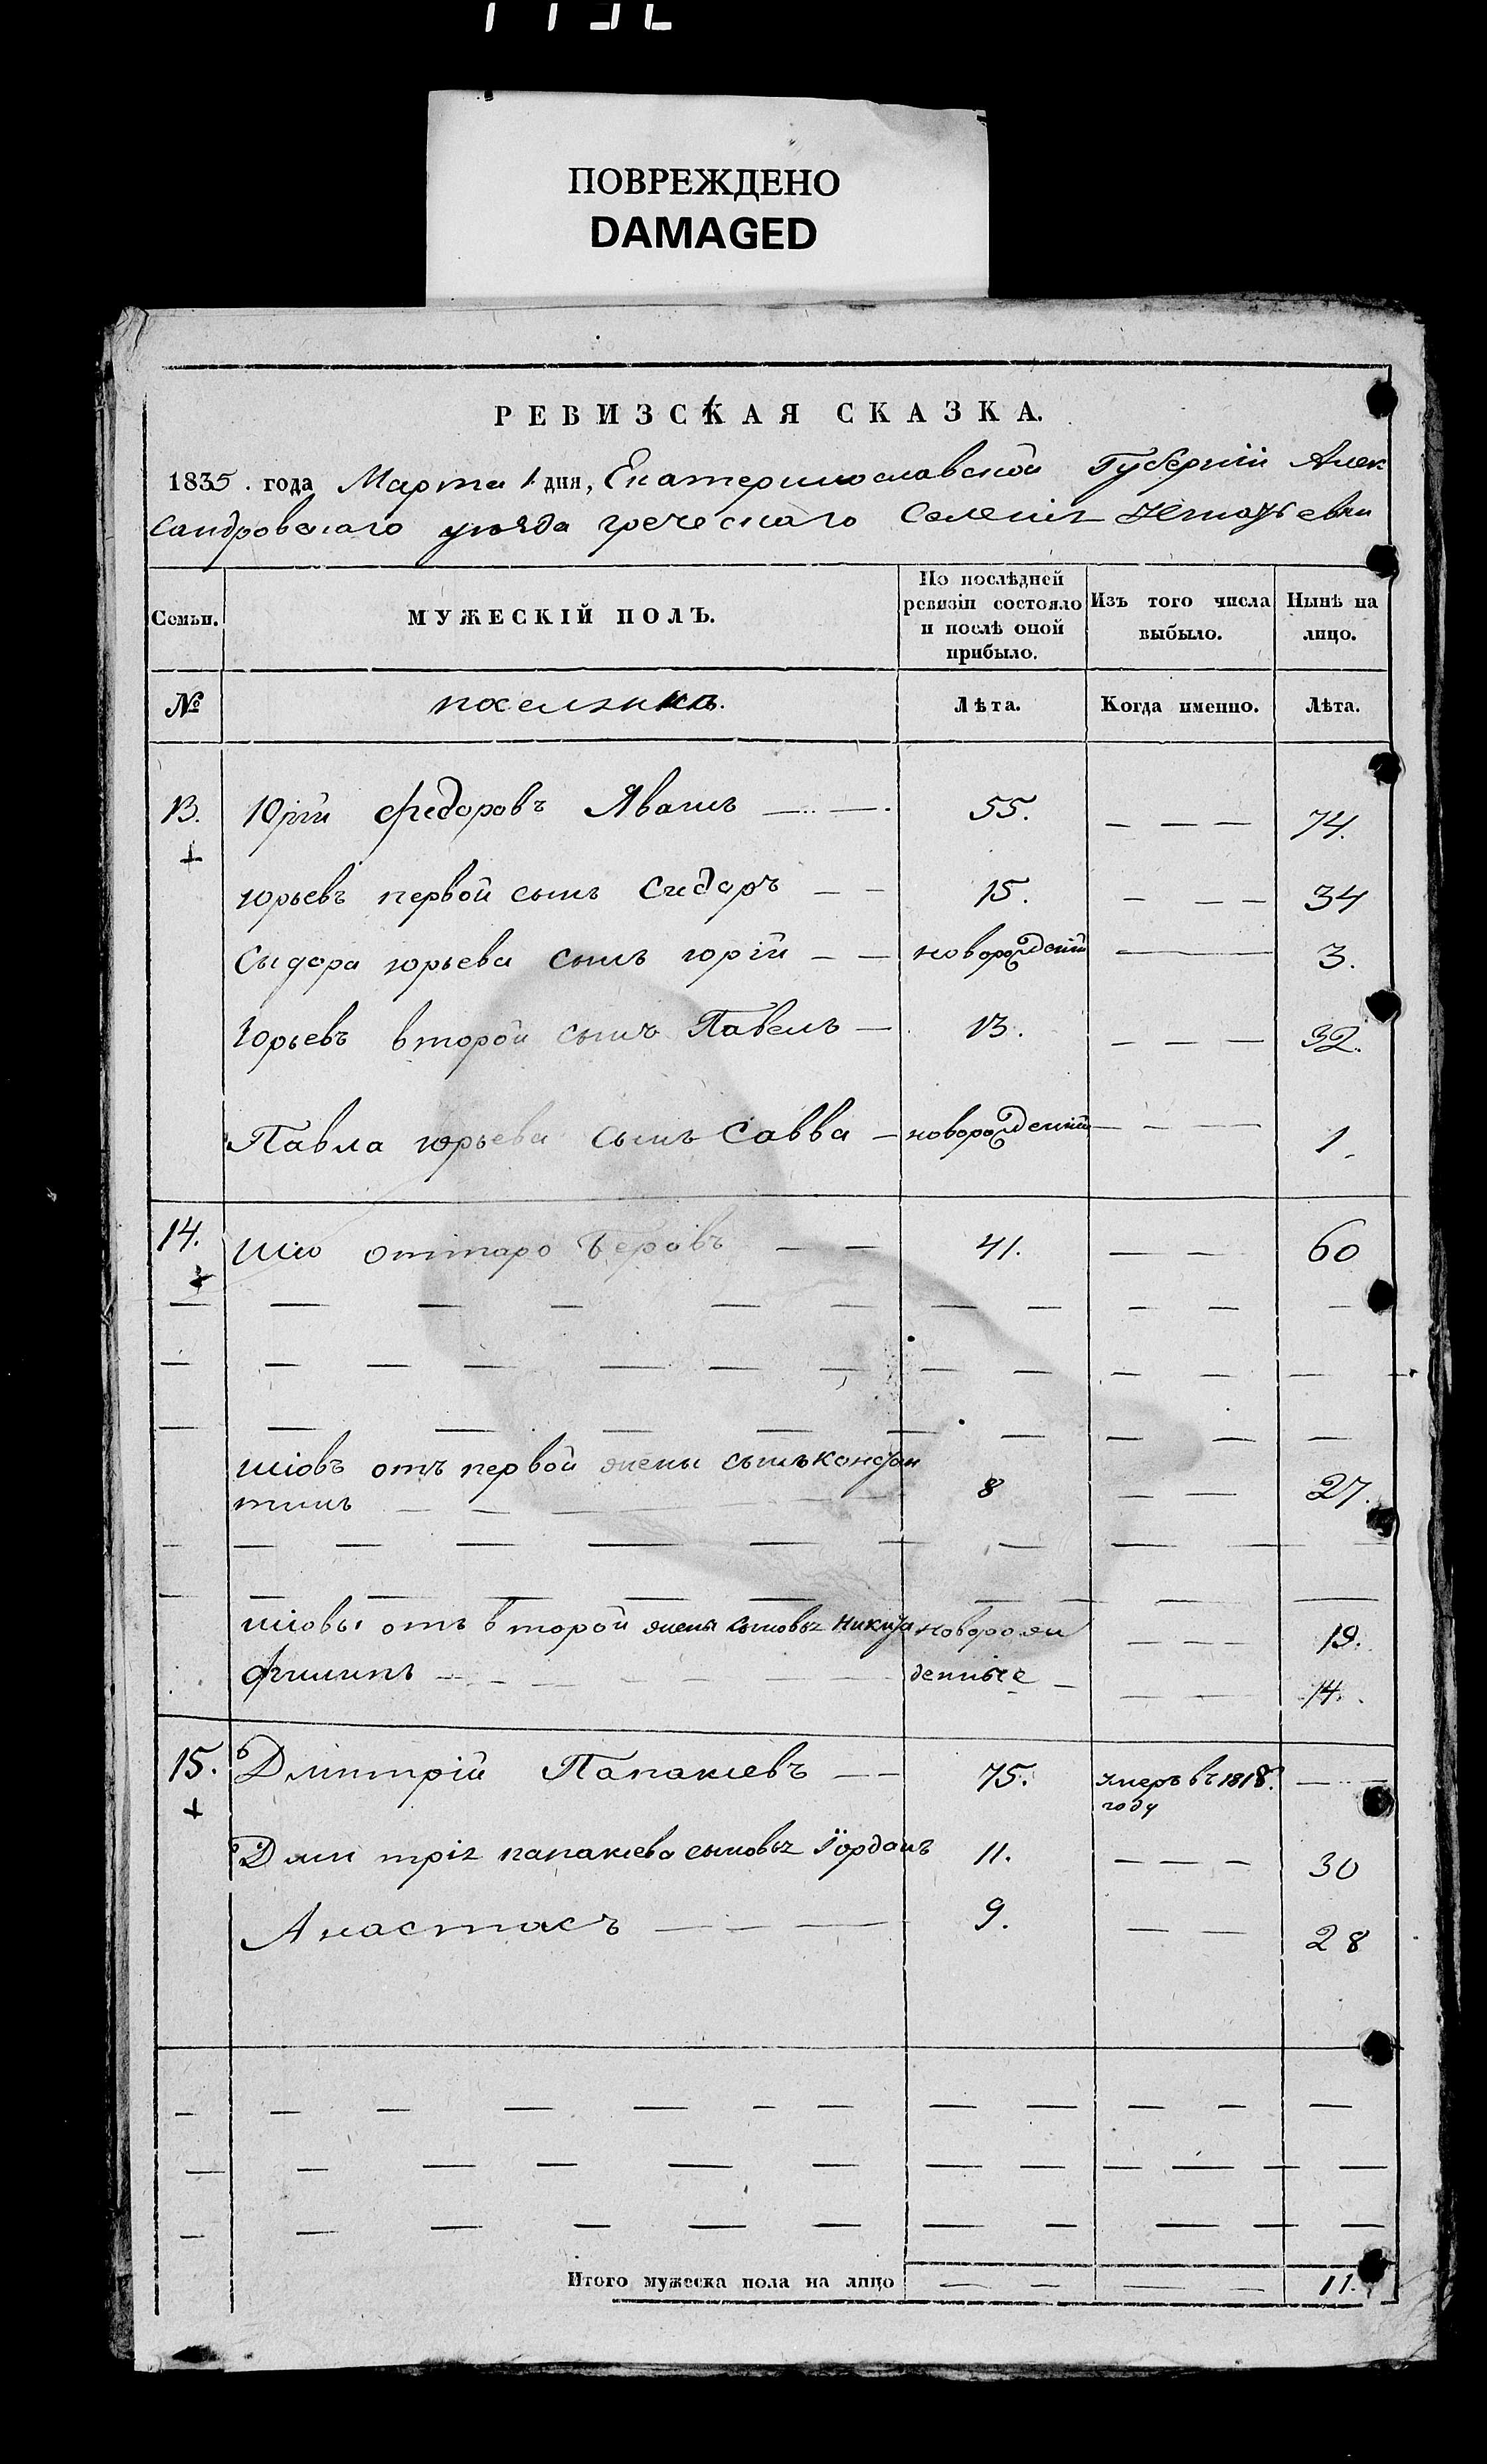 ПОВРЕЖДЕНО
DAMAGED
РЕВИЗСКАЯ СКАЗКА.
1835. года Марта 1 дня, Екатеринославской Губерніи Алек
сандровскаго уезда греческаго Селенія
Семьи. МУЖЕСКІЙ ПОЛЪ. По послѣдней ревизіи состояло и послѣ оной прибыло. Изъ того числа выбыло. Нынѣ на лицо.
№ Лѣта. Когда именно. Лѣта.
13. Юрій Федоровъ 55. — — — 74.
юрьевъ первой сынъ Сидоръ — — 15. — — — 34
Сидора юрьева сынъ юрій — — новорожденій — 3.
Юрьевъ второй сынъ Павелъ — 13. — — — 32.
Павла юрьева сынъ Савва — новорожденій — — — 1.
14. оттаро — — 41. — — 60
отъ первой жены сынъ Констан
тинъ — — 8 — — 27.
отъ второй жены сыновья Никита новорож — — — 19.
филипъ — — денные — — — — 14.
15. Дмитрій Папакіевъ — — 75. умеръ въ 1818. — —
году
Дмитрія папакіева сыновья Іорданъ 11. — — — 30
Анастасъ — — — 9. — — 28
Итого мужеска пола на лицо — — — — 11.